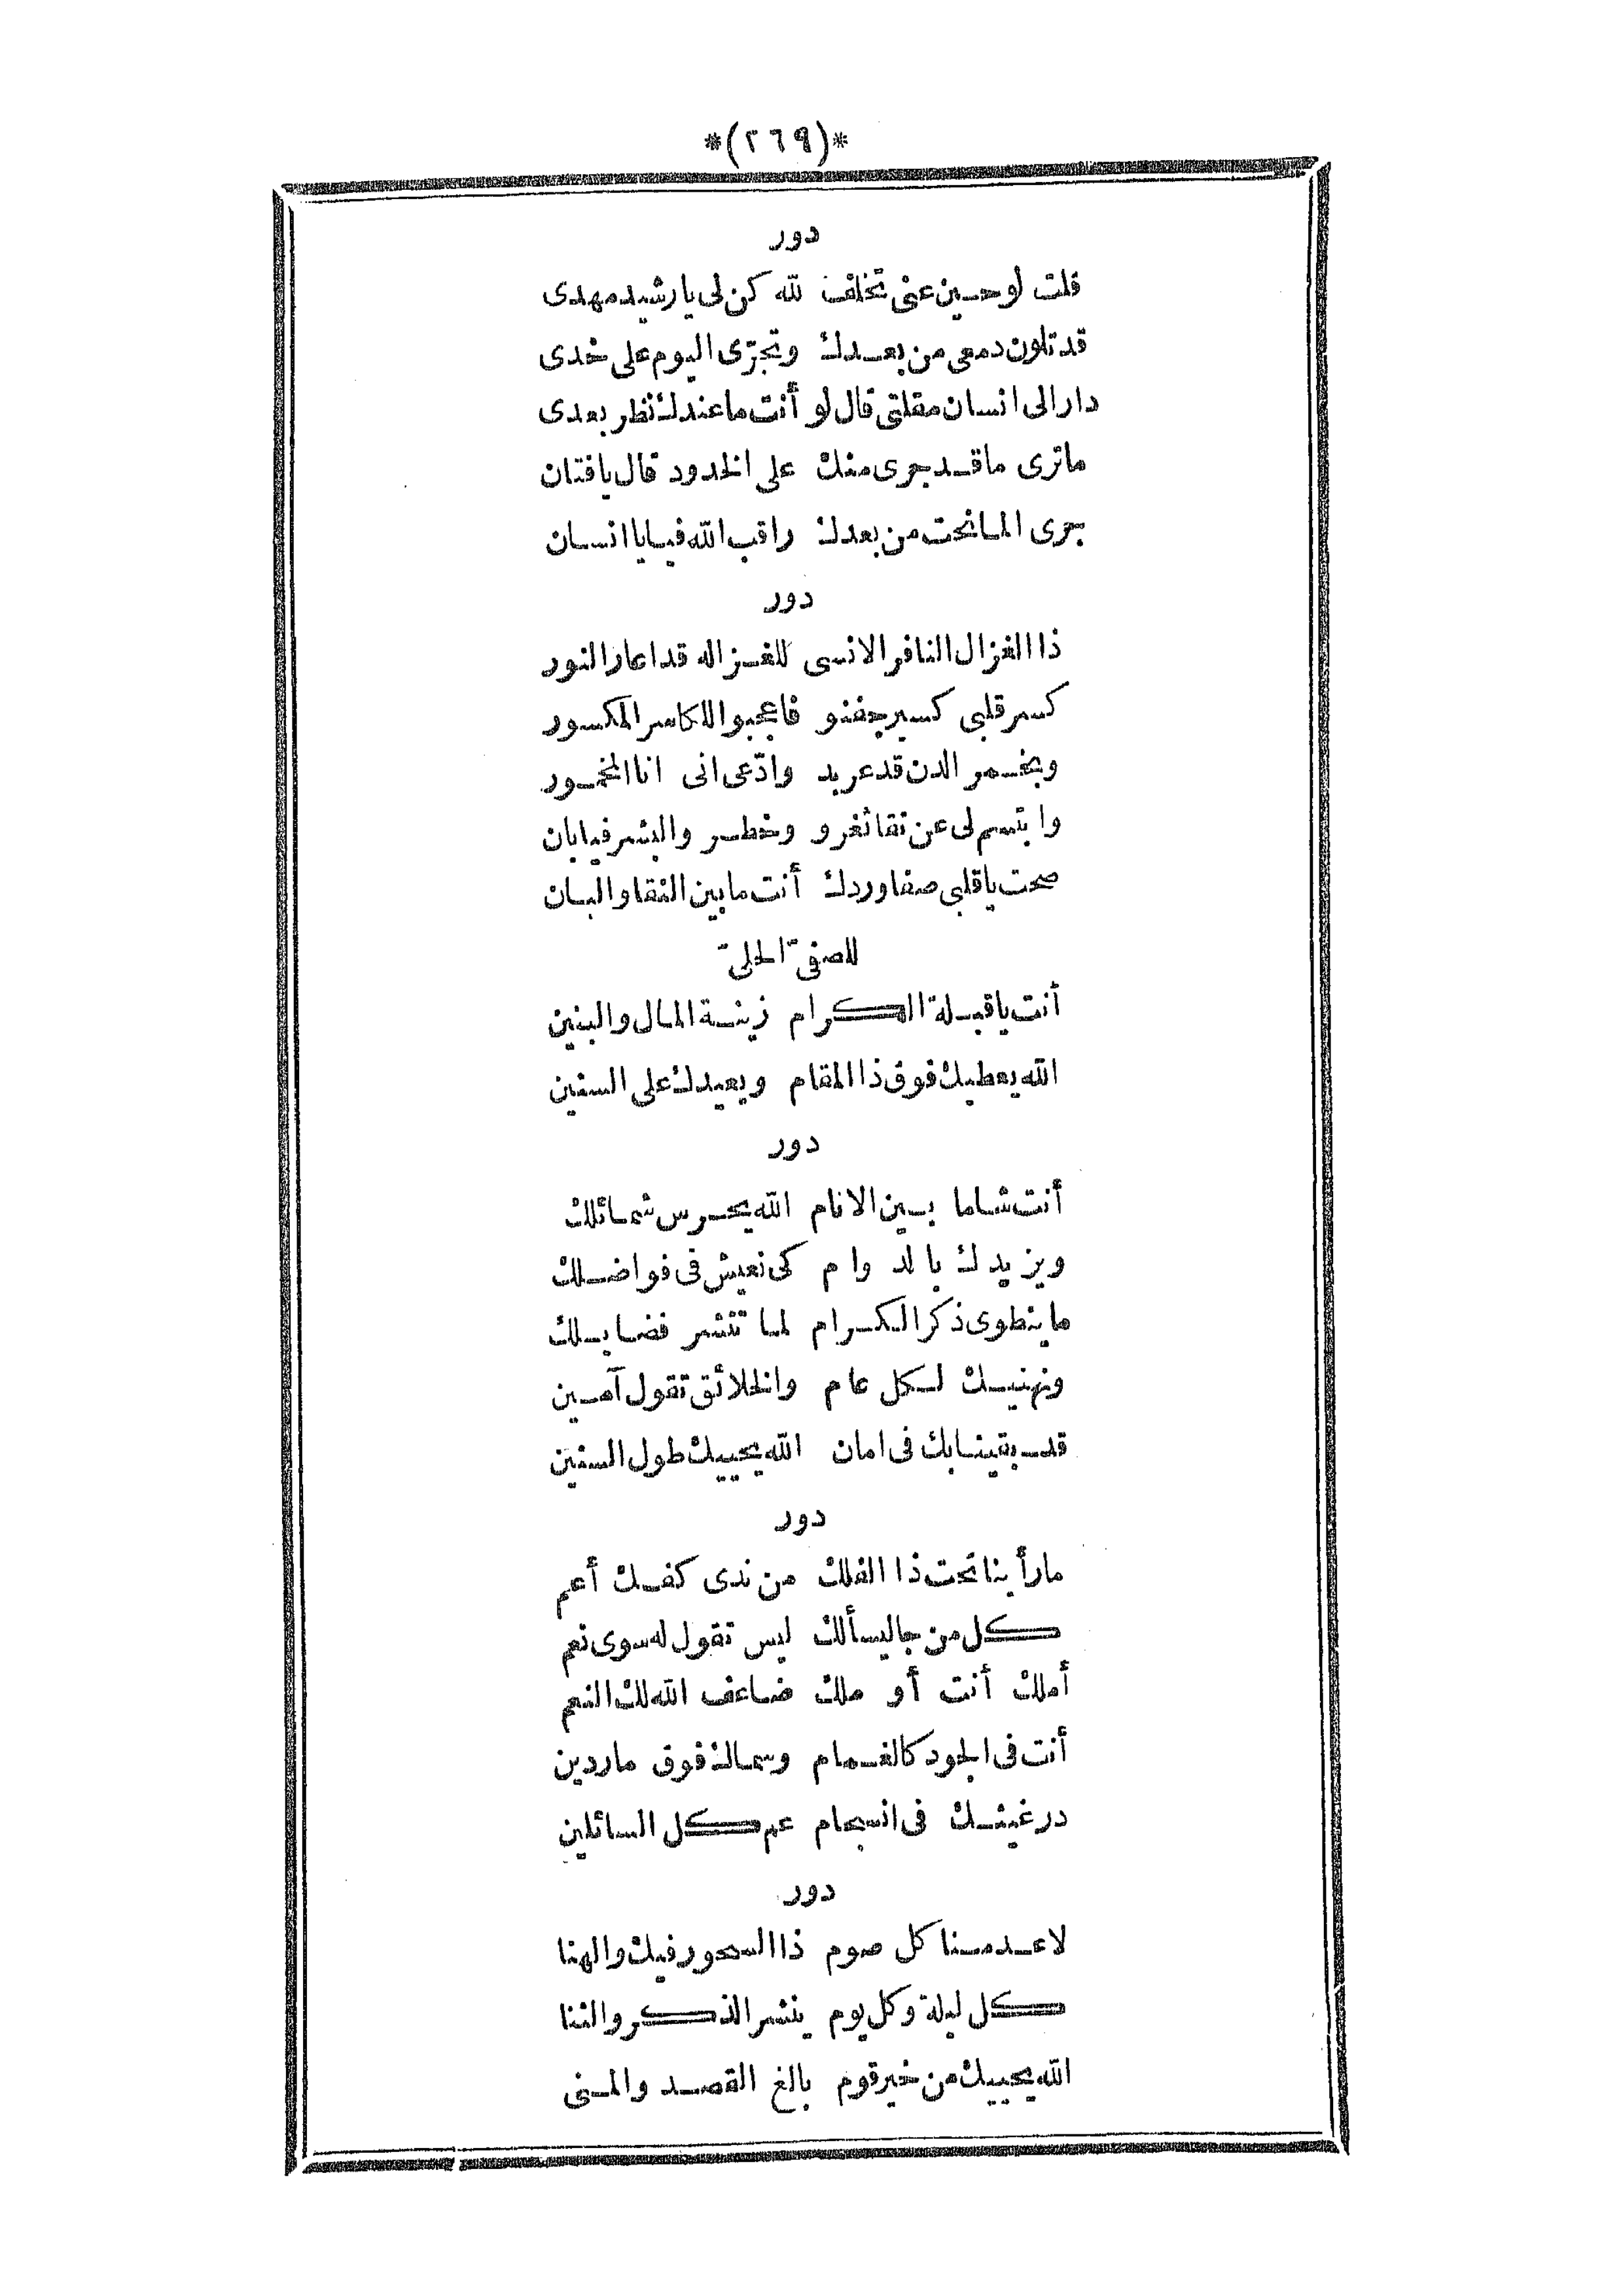 *(٢٦٩)*
دور
قلت لو حسين عنى تخلف لله كن لى يا رشيد مهدى
قد تلون دمعى من بعدك وتجرّى اليوم على خدى
دار الى انسان مقلتى قال لو أنت ما عندك نظر بعدى
ما ترى ما قد جرى منك على الخدود قال يا فتان
جرى الما نحت من بعدك راقب الله فيا يا انسان
دور
ذا الغزال النافر الانسى للغزاله قد اعار النور
كسر قلبى كسير جفنو فاعجبوا للكاسر المكسور
وبخمر الدن قد عربد وادّعى انى انا المخمور
وابتسم لى عن نقا ثغرو وخطر والبشر فيا بان
صحت يا قلبى صفا وردك أنت ما بين النقا والبان
للصفىّ الحلىّ
أنت يا قبلة الكرام زينة المال والبنين
الله يعطيك فوق ذا المقام ويعيدك على السنين
دور
أنت شاما بين الانام الله يحرس شمائلك
ويزيدك بالدوام كى نعيش فى فواضلك
ما ينطوى ذكر الكرام لما تنتشر فضايلك
ونهنيك لكل عام والخلائق تقول آمين
قد بقينا بك فى امان الله يحييك طول السنين
دور
ما رأينا تحت ذا الفلك من ندى كفك أعم
كل من جا ليسألك ليس تقول له سوى نعم
أملك أنت أو ملك ضاعف الله لك النعم
أنت فى الجود كالغمام وسمالك فوق ماردين
در غيثك فى انسجام عم كل السائلين
دور
لا عدمنا كل صوم ذا السحور فيك والهنا
كل ليلة وكل يوم ينشر الذكر والثنا
الله يحييك من خير قوم بالغ القصد والمنى